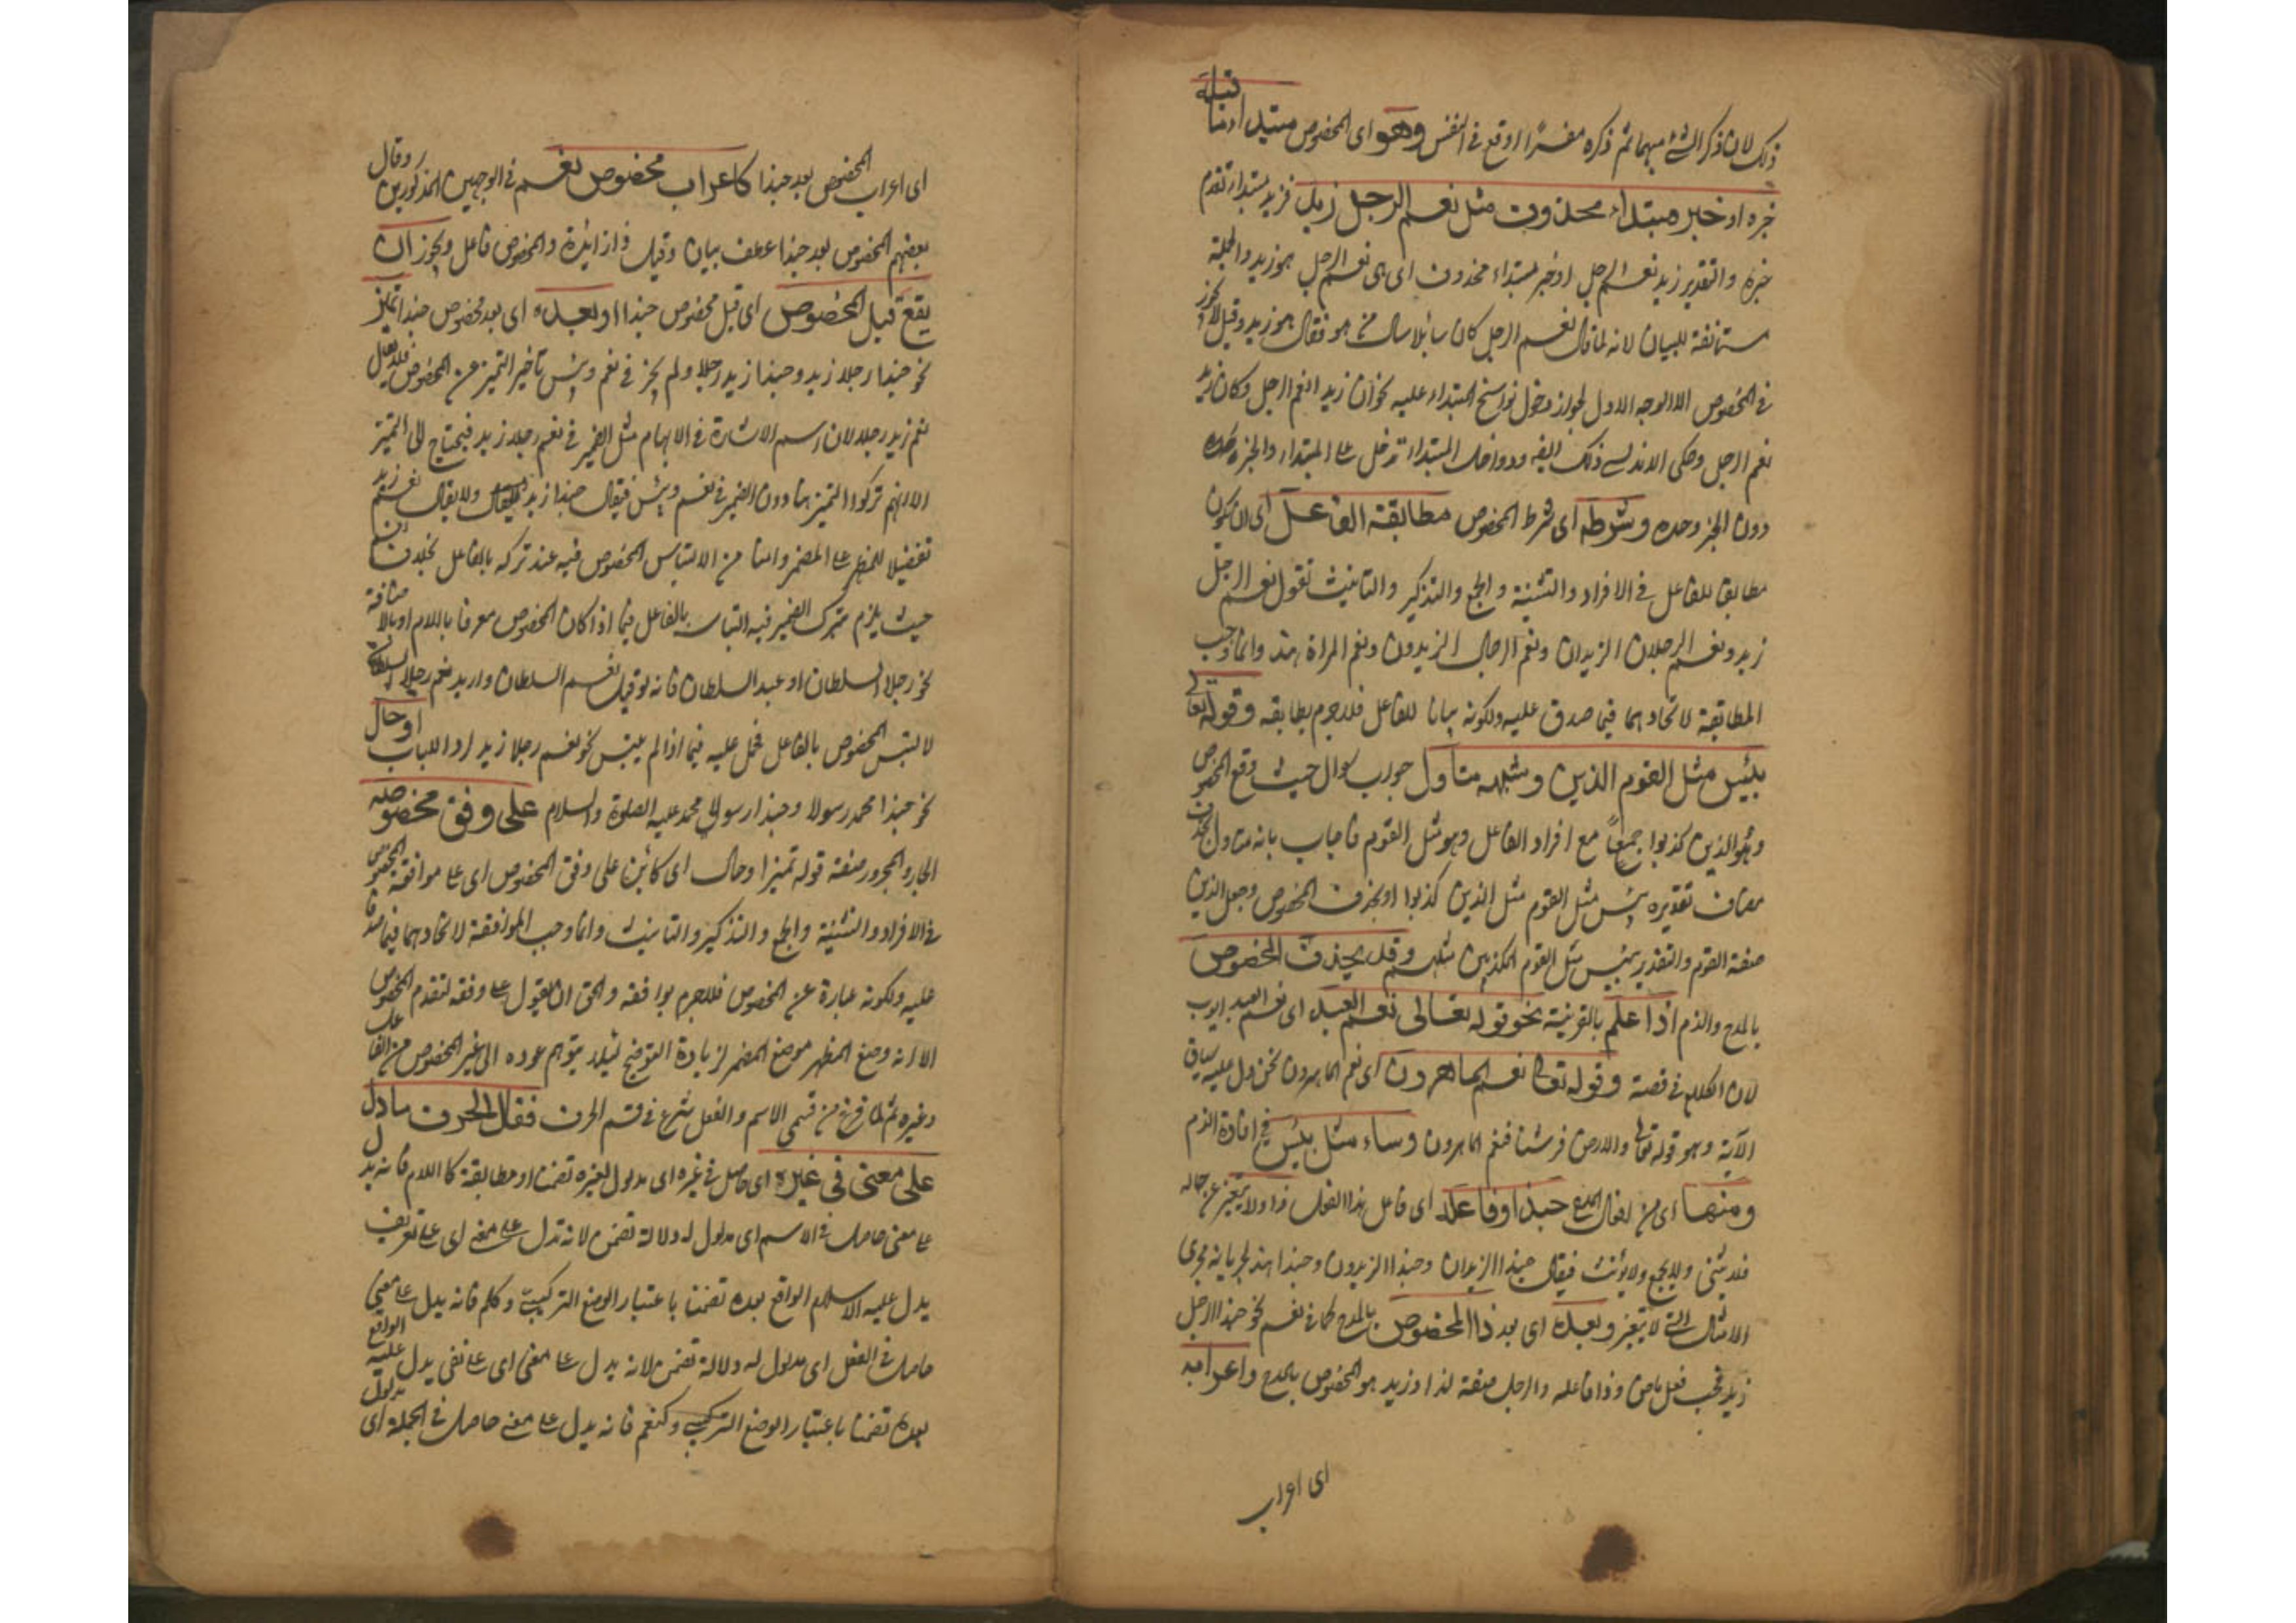 ذلك لان ذكر الشئ مبهما ثم ذكره مفسرا اوقع فى النفس وهو اى المخصوص مبتدا وما قبله
خبره او خبر مبتداء محذوف مثل نعم الرجل زيد فزيد مبتدا تقدم
خبره والتقدير زيد نعم الرجل او خبر مبتداء محذوف اى هى نعم الرجل هو زيد والجملة
مستانفة للبيان لانه لما قال نعم الرجل كان سائلا سال من هو فقال هو زيد وقيل لا يجوز
فى المخصوص الا الوجه الاول لجواز دخول نواسخ المبتداء عليه نحو ان زيدا نعم الرجل وكان زيد
نعم الرجل وحكى الاندلسى ذلك ايضا ودواخل المبتداء تدخل على المبتداء والخبر
دون الخبر وحده وشرطه اى شرط المخصوص مطابقة الفاعل اى ان يكون
مطابقا للفاعل فى الافراد والتثنية والجمع والتذكير والتانيث تقول نعم الرجل
زيد ونعم الرجلان الزيدان ونعم الرجال الزيدون ونعم المراة هند وانما وجب
المطابقة لاتحادهما فيما صدق عليه ولكونه بيانا للفاعل فلا جرم يطابقه وقوله تعالى
بئس مثل القوم الذين وشبهه متاول جواب سوال حيث وقع المخصوص
وهو الذين كذبوا جمعا مع افراد الفاعل وهو مثل القوم فاجاب بانه متاول بحذف
مضاف تقديره بئس مثل القوم مثل الذين كذبوا او بحذف المخصوص وجعل الذين
صفة القوم والتقدير بئس مثل القوم المكذبين مثلهم وقد يحذف المخصوص
بالمدح والذم اذا علم بالقرينة نحو قوله تعالى نعم العبد اى نعم العبد ايوب
لان الكلام فى قصة وقوله تعالى نعم الماهدون اى نعم الماهدون نحن دل عليه سياق
الآية وهو قوله تعالى والارض فرشنا فنعم الماهدون وساء مثل بئس فى افادة الذم
ومنها اى من افعال المدح حبذا وفاعله اى فاعل هذا الفعل ذا ولا يتغير عن حاله
فلا يثنى ولا يجمع ولا يؤنث فيقال حبذا الزيدان وحبذا الزيدون وحبذا هند لجريانه مجرى
الامثال التى لا تتغير وبعده اى بعد ذا المخصوص بالمدح كما فى نعم نحو حبذا الرجل
زيد فحب فعل ماض وذا فاعله والرجل صفة لذا وزيد هو المخصوص بالمدح واعرابه
اى اعراب
اى اعراب المخصوص بعد حبذا كاعراب مخصوص نعم فى الوجهين المذكورين وقال
بعضهم المخصوص بعد حبذا عطف بيان وقيل ذا زائدة والمخصوص فاعل ويجوز ان
يقع قبل المخصوص اى قبل مخصوص حبذا او بعده اى بعد مخصوص حبذا تميز
نحو حبذا رجلا زيد وحبذا زيد رجلا ولم يجز فى نعم وبئس تاخير التميز عن المخصوص فلا يقال
نعم زيد رجلا لان اسم الاشارة فى الابهام مثل الضمير فى نعم رجلا زيد فيحتاج الى التميز
الا انهم تركوا التميز هنا دون الضمير فى نعم وبئس فيقال حبذا زيد ولا يقال نعم زيد
تفضيلا للمظهر على المضمر وامنا من الالتباس المخصوص فيه عند تركه بالفاعل بخلاف نعم
حيث يلزم بترك الضمير فيه التباسه بالفاعل فيما اذا كان المخصوص معرفا باللام او بالاضافة
نحو رجلا السلطان او عبد السلطان فانه لو قيل نعم السلطان واريد نعم رجلا السلطان
لالتبس المخصوص بالفاعل فحمل عليه فيما اذا لم يلتبس نحو نعم رجلا زيد طردا للباب او حال
نحو حبذا محمد رسولا وحبذا رسولا محمد عليه الصلوة والسلام على وفق مخصوصه
الجار والمجرور صفة قوله تميزا وحال اى كائن على وفق المخصوص اى على موافقة المخصوص
فى الافراد والتثنية والجمع والتذكير والتانيث وانما وجب الموافقة لاتحادهما فيما صدقا
عليه ولكونه عبارة عن المخصوص فلا جرم يوافقه والحق ان يقول على وفقه لتقدم المخصوص
الا انه وضع المظهر موضع المضمر لزيادة التوضيح لئلا يتوهم عوده الى غير المخصوص من الفاعل
وغيره ثم لما فرغ من قسمى الاسم والفعل شرع فى قسم الحرف فقال الحرف ما دل
على معنى فى غيره اى حاصل فى غيره اى مدلول لغيره تضمنا او مطابقة كاللام فانه يدل
على معنى حاصل فى الاسم اى مدلول له دلالة تضمن لانه تدل على معنى اى على تعريف
يدل عليه الاسم الواقع بعده تضمنا باعتبار الوضع التركيبى وكلم فانه يدل على معنى
حاصل فى الفعل اى مدلول له دلالة تضمن لانه يدل على معنى اى على نفى يدل عليه الواقع
بعده تضمنا باعتبار الوضع التركيبى وكنعم فانه يدل على معنى حاصل فى الجملة اى مدلول